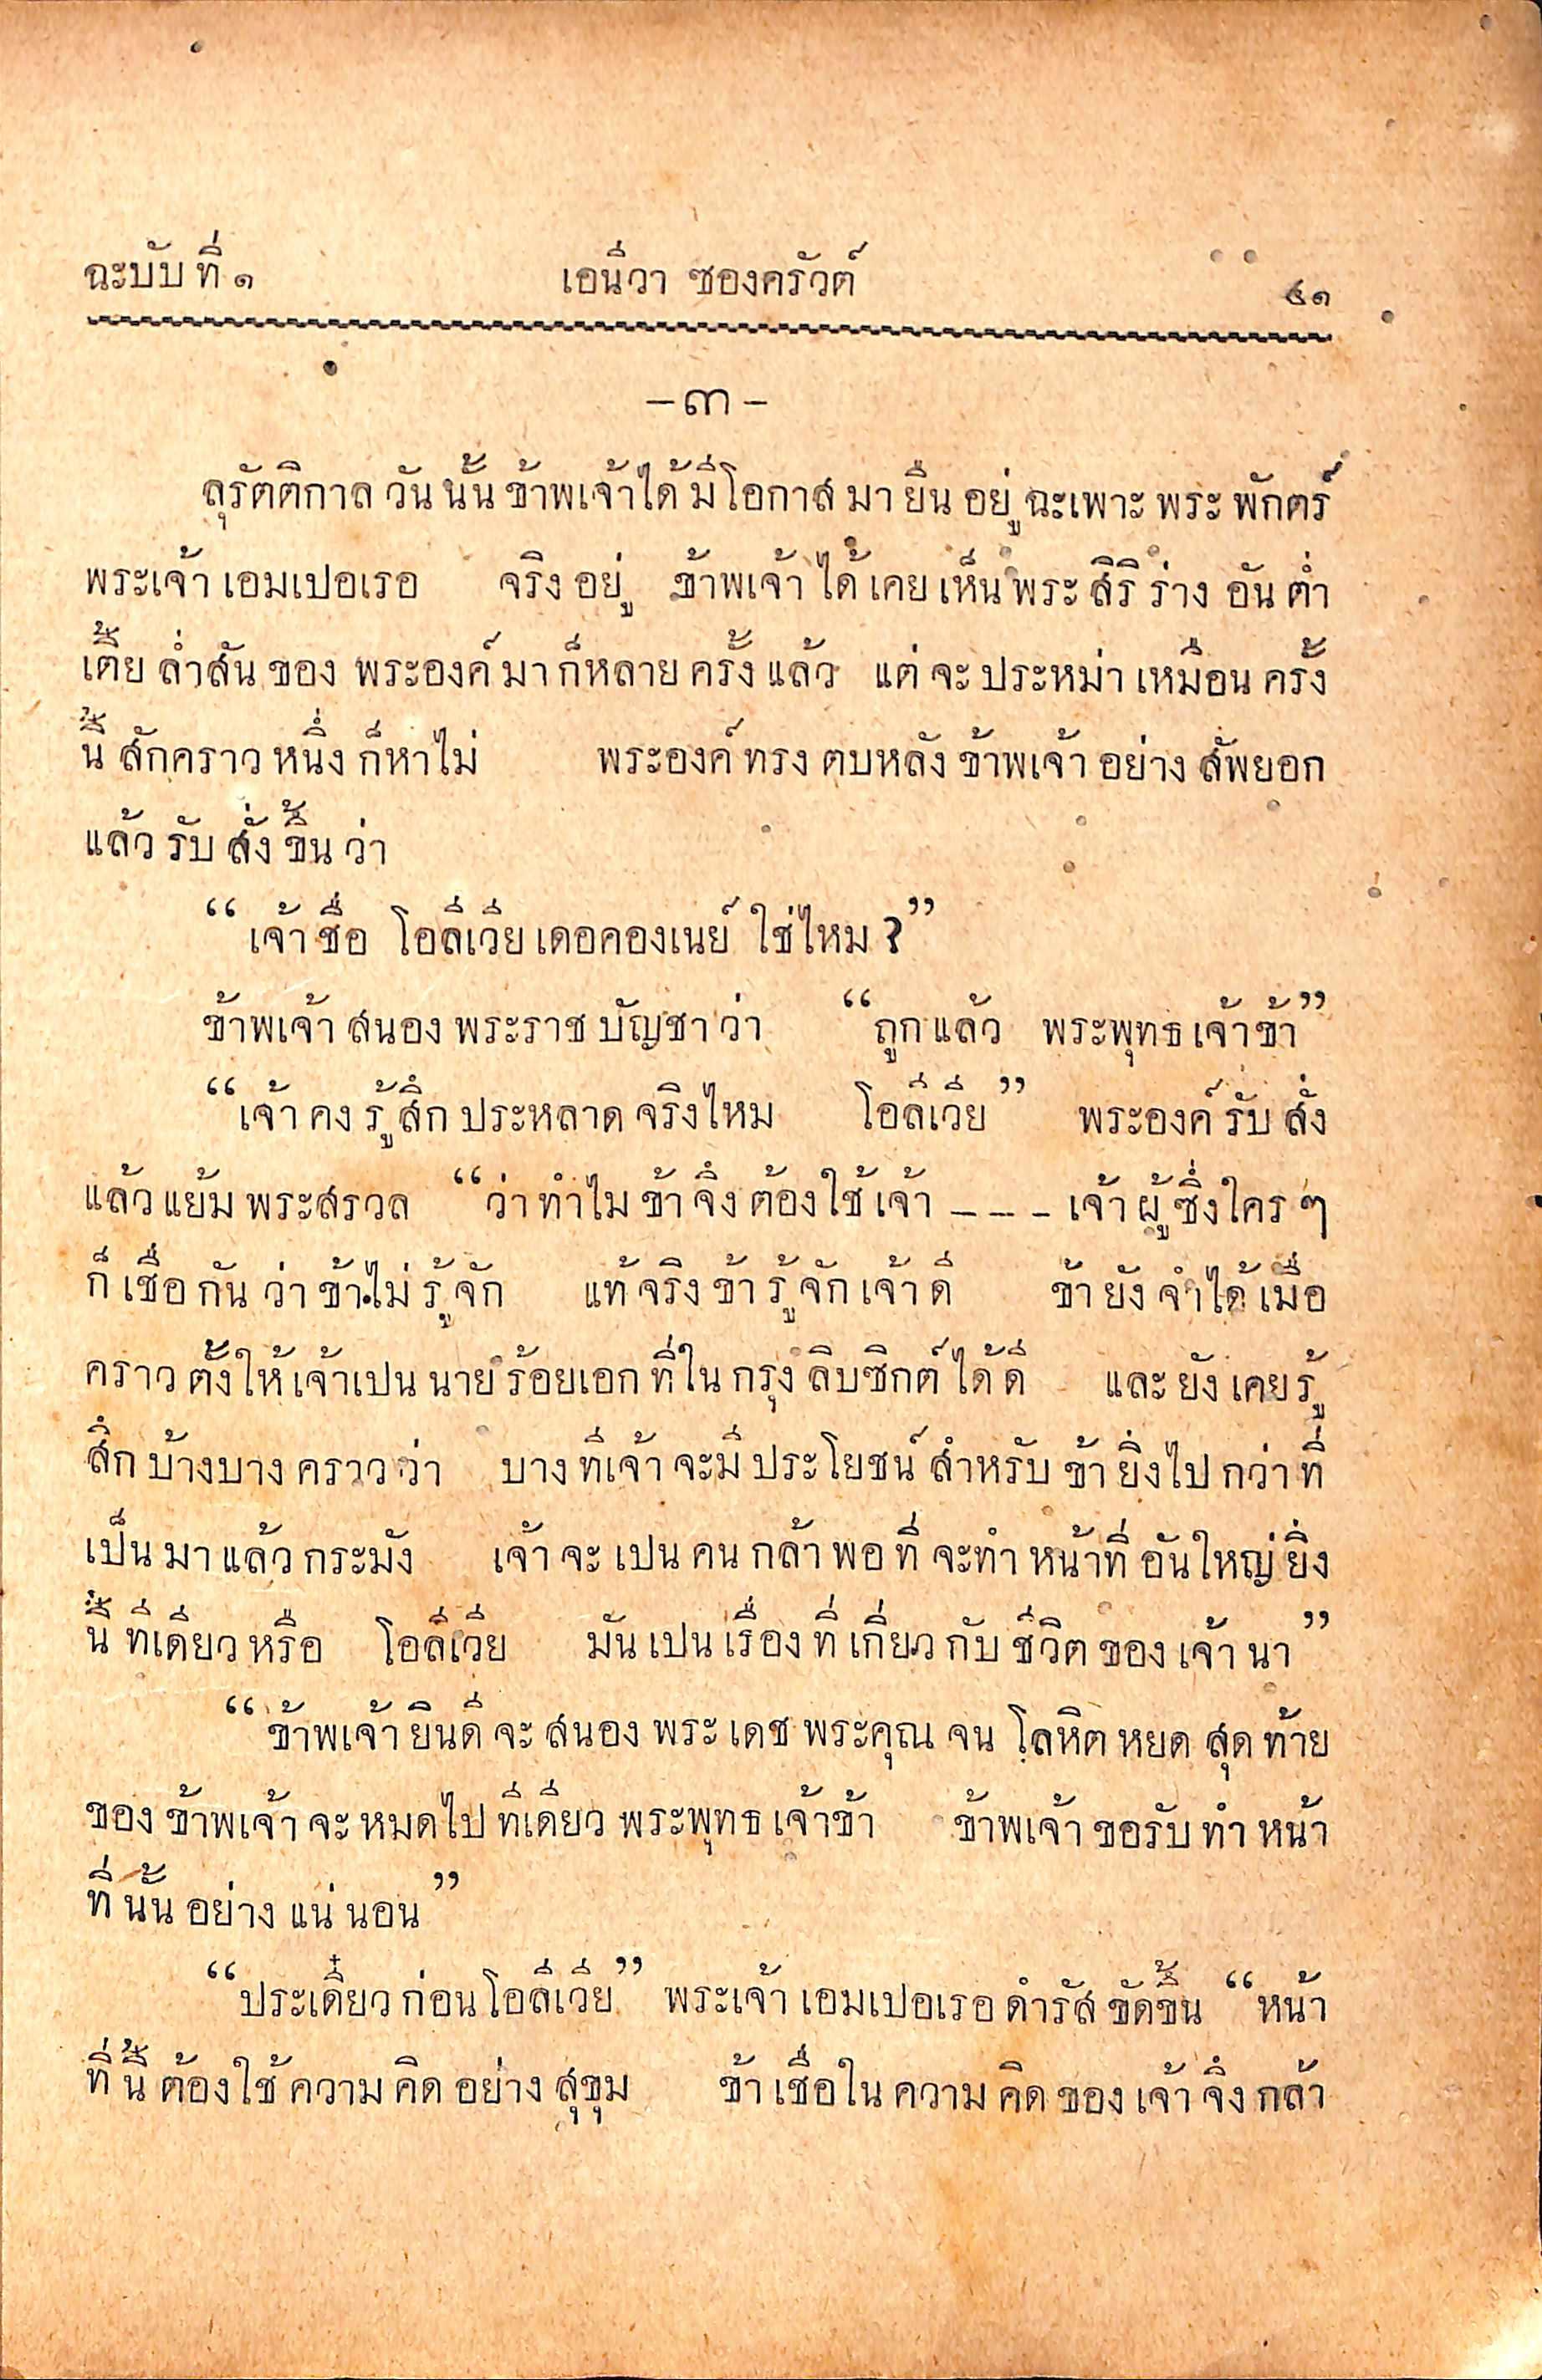 ฉะบับ ที่ ๑ เอนีวา ซองครัวต์ ๔๑
—๓—
ลุรัตติกาล วัน นั้น ข้าพเจ้าได้ มีโอกาส มา ยืน อยู่ ฉะเพาะ พระ พักตร์
พระเจ้า เอมเปอเรอ จริง อยู่ ข้าพเจ้า ได้ เคย เห็น พระ สิริ ร่าง อัน ต่ำ
เตี้ย ล่ำสัน ของ พระองค์ มา ก็หลาย ครั้ง แล้ว แต่ จะ ประหม่า เหมือน ครั้ง
นี้ สักคราว หนึ่ง ก็หาไม่ พระองค์ ทรง ตบหลัง ข้าพเจ้า อย่าง สัพยอก
แล้ว รับ สั่ง ขึ้น ว่า
“เจ้า ชื่อ โอลิเวีย เดอคองเนย์ ใช่ไหม ?”
ข้าพเจ้า สนอง พระราช บัญชา ว่า “ถูก แล้ว พระพุทธ เจ้าข้า”
“เจ้า คง รู้ สึก ประหลาด จริงไหม โอลิเวีย” พระองค์ รับ สั่ง
แล้ว แย้ม พระสรวล “ว่า ทำไม ข้า จึง ต้องใช้ เจ้า – – – เจ้า ผู้ ซึ่งใคร ๆ
ก็ เชื่อ กัน ว่า ข้าไม่ รู้ จัก แท้ จริง ข้า รู้ จัก เจ้า ดี ข้า ยัง จำได้ เมื่อ
คราว ตั้งให้ เจ้าเปน นาย ร้อยเอก ที่ใน กรุง ลิบซิกต์ ได้ ดี และ ยัง เคย รู้
สึก บ้างบาง คราว ว่า บาง ทีเจ้า จะมี ประโยชน์ สำหรับ ข้า ยิ่งไป กว่า ที่
เป็น มา แล้ว กระมัง เจ้า จะ เปน คน กล้า พอ ที่ จะทำ หน้าที่ อันใหญ่ ยิ่ง
นี้ ทีเดียว หรือ โอลิเวีย มัน เปน เรื่อง ที่ เกี่ยว กับ ชีวิต ของ เจ้า นา”
“ข้าพเจ้า ยินดี จะ สนอง พระ เดช พระคุณ จน โลหิต หยด สุด ท้าย
ของ ข้าพเจ้า จะ หมดไป ทีเดียว พระพุทธ เจ้าข้า ข้าพเจ้า ขอรับ ทำ หน้า
ที่ นั้น อย่าง แน่ นอน”
“ประเดี๋ยว ก่อน โอลิเวีย” พระเจ้า เอมเปอเรอ ดำรัส ขัดขึ้น “หน้า
ที่ นี้ ต้องใช้ ความ คิด อย่าง สุขุม ข้า เชื่อใน ความ คิด ของ เจ้า จึง กล้า